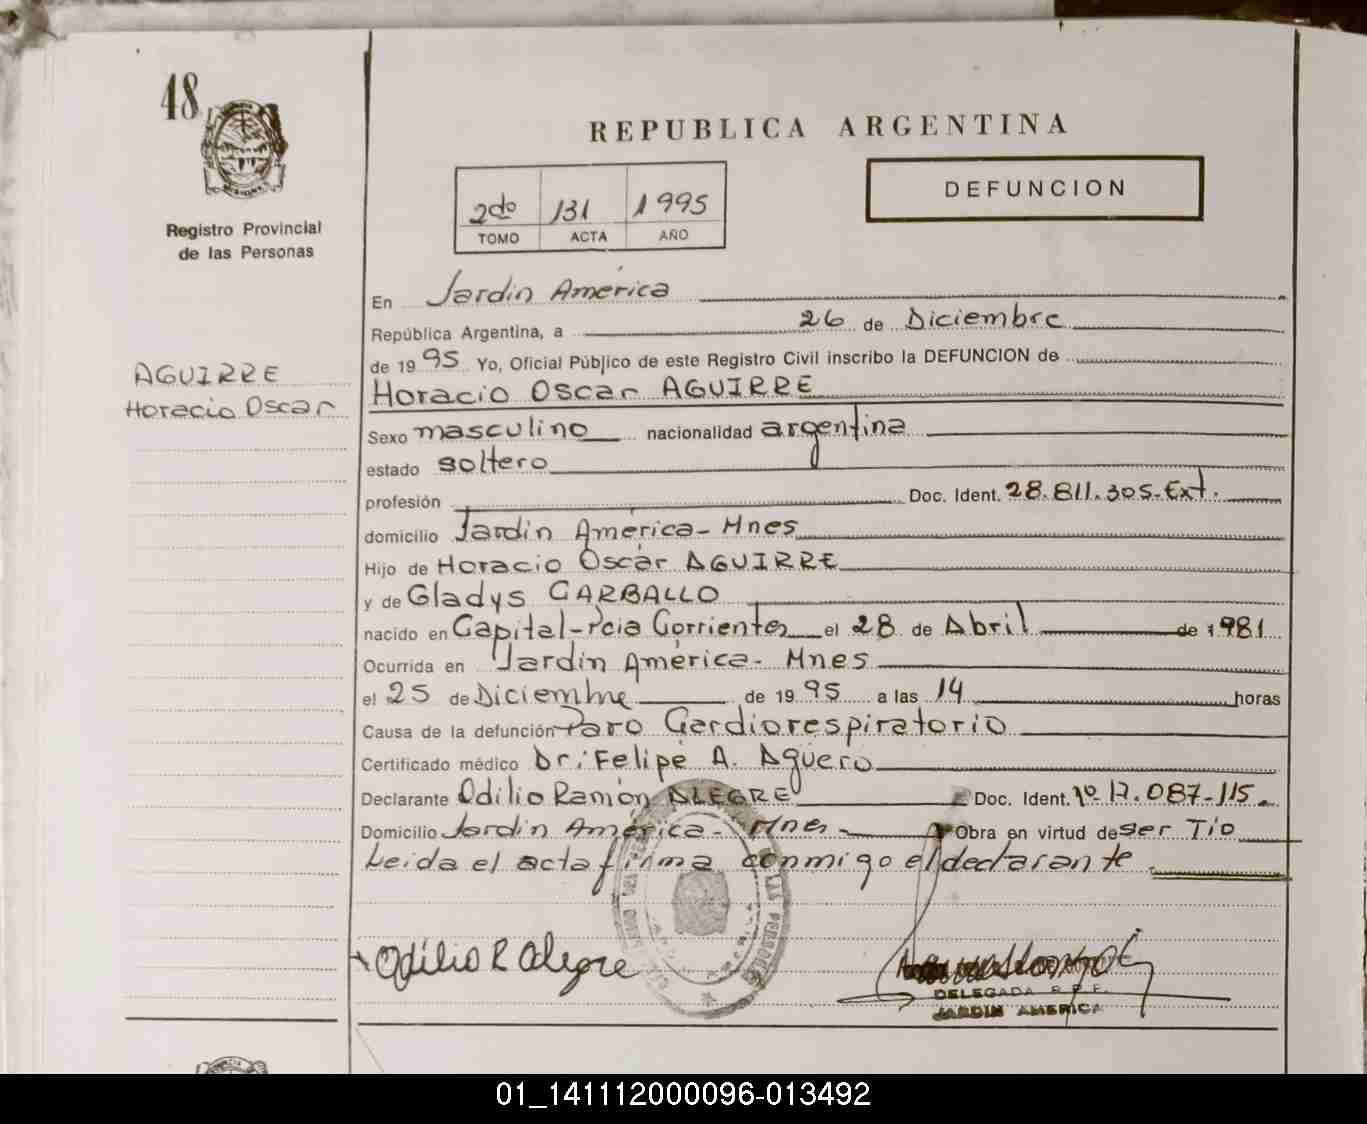 48
REPUBLICA ARGENTINA
DEFUNCION
2do 131 1995
TOMO ACTA AÑO
Registro Provincial
de las Personas
AGUIRRE
Horacio Oscar
En Jardin América
República Argentina, a 26 de Diciembre
de 1995 Yo, Oficial Público de este Registro Civil inscribo la DEFUNCION de
Horacio Oscar AGUIRRE
Sexo masculino nacionalidad argentina
estado soltero
profesión Doc. Ident. 28.811.305-Ext.
domicilio Jardin América - Mnes
Hijo de Horacio Oscar AGUIRRE
y de Gladys CARBALLO
nacido en Capital-Pcia Corrientes el 28 de Abril de 1981
Ocurrida en Jardin América - Mnes
el 25 de Diciembre de 1995 a las 14 horas
Causa de la defunción Paro Cardiorespiratorio
Certificado médico Dr: Felipe A. Agüero
Declarante Odilio Ramón ALEGRE Doc. Ident. Nº 17.087-115.
Domicilio Jardin América - Mnes - Obra en virtud de ser Tío
Leida el acta firma conmigo el declarante
Odilio R Alegre
DELEGADA R. P. P.
JARDIN AMERICA
01_141112000096-013492